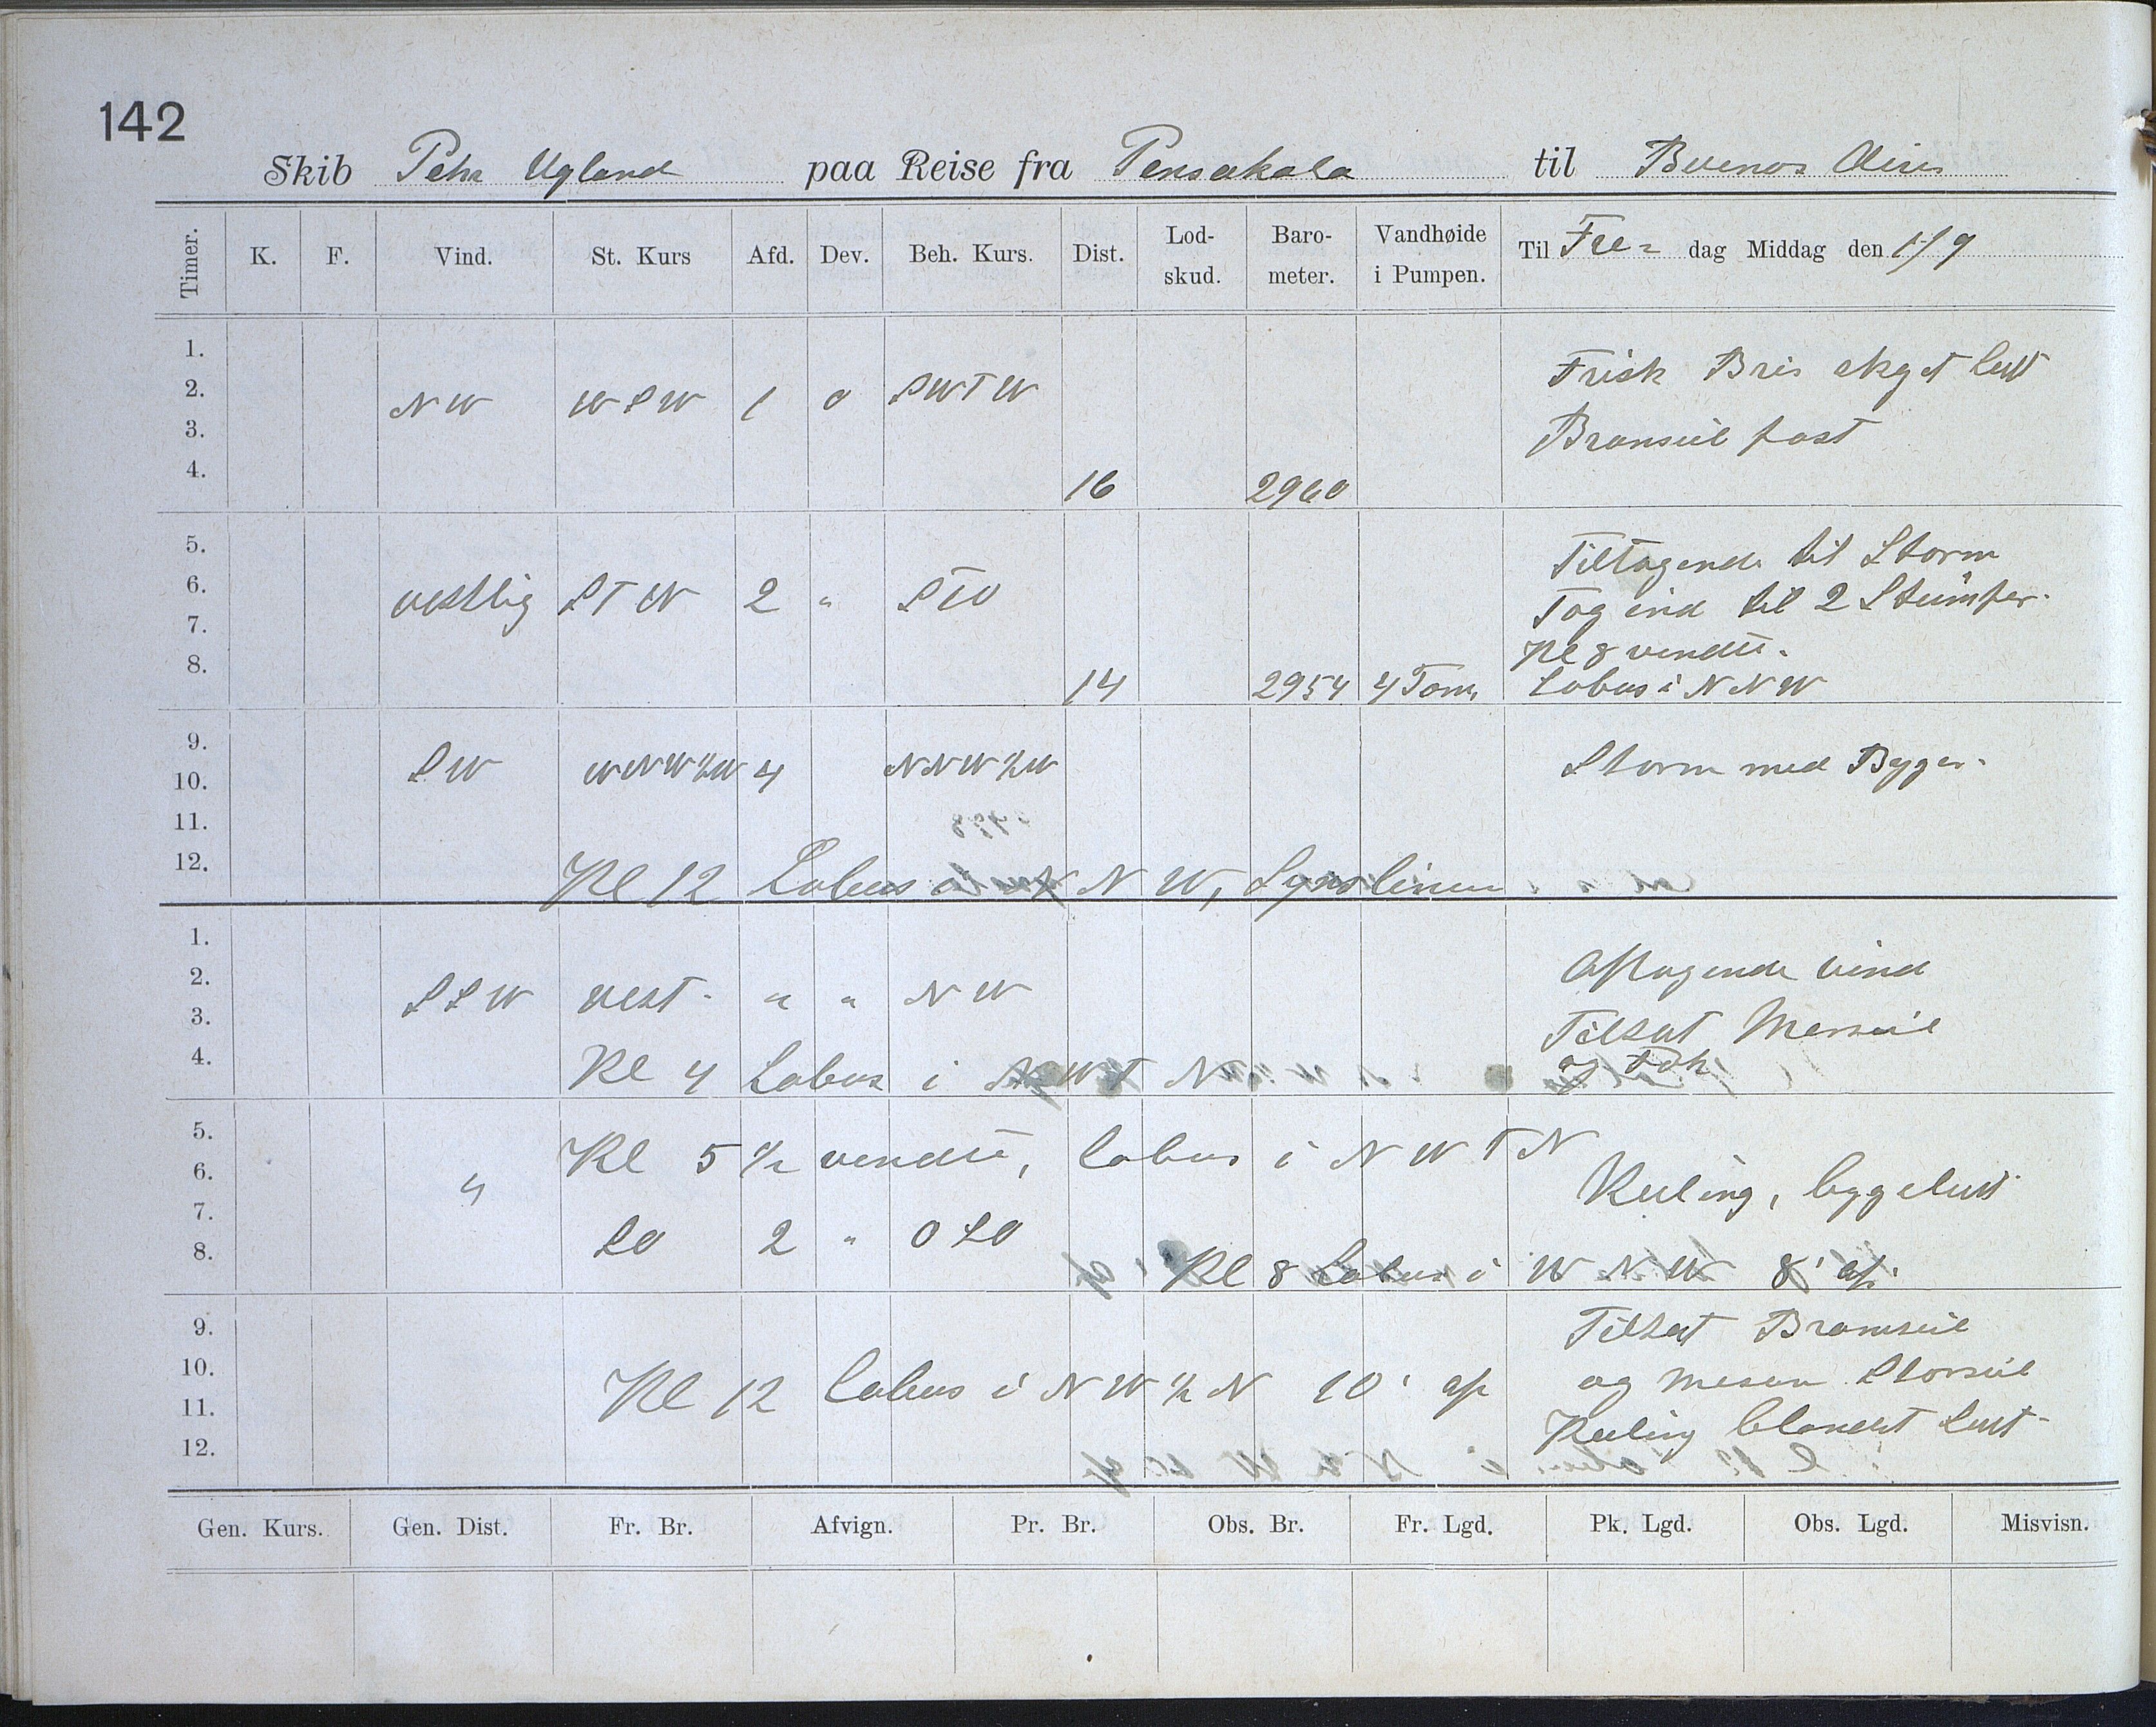 142
Skib Pehr Ugland paa Reise fra Pensakola til Buenos Aires
Timer. K. F. Vind. St. Kurs Afd. Dev. Beh. Kurs. Dist. Lod-skud. Baro-meter. Vandhøide i Pumpen. Til Fre- dag Middag den 1/9
1.
2. NW WSW 1 0 SWTW Frisk Bris skyet luft
3. Bramseil fast
4. 16 2960
5. Tiltagende til Storm
6. vestlig STW 2 " Tog ind til 2 Stumper.
7. Kl 8 vendte.
8. 14 2954 4 Tom Lobos i NNW
9.
10. SW WNW½W 4 NNW½W Storm med Byger.
11.
12. Kl 12 Lobos i NNW,
1.
2. SSW vest. " " NW Aftagende vind
3. Tilsat Merseil
4. Kl 4 Lobos i NWTN og Fok
5. Kl 5½ vendte, lobos i NWTN
6. " Kuling, bygeluft
7. SO 2 " OSO
8. Kl 8 Lobos i WNW 8' af.
9. Tilsat Bramseil
10. og mesan Storseil
11. Kl 12 lobos i NW½N 10' af Kuling blandet Luft
12.
Gen. Kurs. Gen. Dist. Fr. Br. Afvign. Pr. Br. Obs. Br. Fr. Lgd. Pk. Lgd. Obs. Lgd. Misvisn.